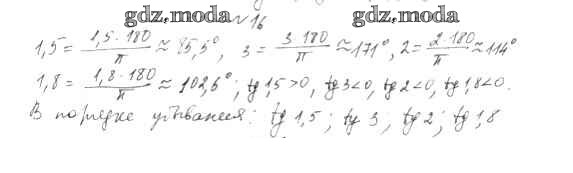 gdz.moda №16 gdz.moda
1,5 = 1,5·180/π ≈ 85,5°, 3 = 3·180/π ≈ 171°, 2 = 2·180/π ≈ 114°
1,8 = 1,8·180/π ≈ 102,6°; tg 1,5 > 0, tg 3 < 0, tg 2 < 0, tg 1,8 < 0.
В порядке убывания: tg 1,5; tg 3; tg 2; tg 1,8